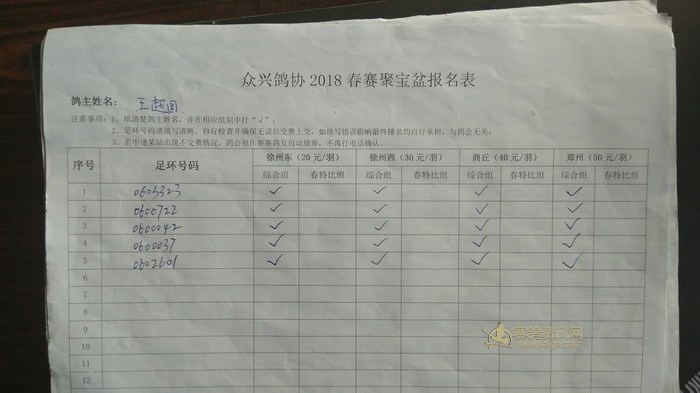 众兴鸽协 2018 春赛聚宝盆报名表
鸽主姓名：
注意事项：1、填清楚鸽主姓名，并在相应组别中打“√”；
2、足环号码请填写清晰，自行检查并确保无误后交费上交，如填写错误影响最终排名均自行承担，与鸽会无关；
3、若中途某站出现不交费情况，鸽会视作参赛鸽友自动放弃，不再打电话确认。
序号 足环号码 徐州东（20 元/羽） 徐州西（30 元/羽） 商丘（40 元/羽） 郑州（50 元/羽）
综合组 春特比组 综合组 春特比组 综合组 春特比组 综合组 春特比组
1 0603323 ✓ ✓ ✓ ✓
2 0600722 ✓ ✓ ✓ ✓
3 0600042 ✓ ✓ ✓ ✓
4 0600037 ✓ ✓ ✓ ✓
5 0602601 ✓ ✓ ✓ ✓
6
7
8
9
10
11
12
赛鸽资讯网